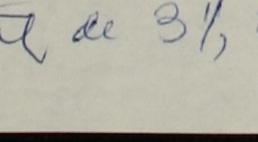 de 3%,